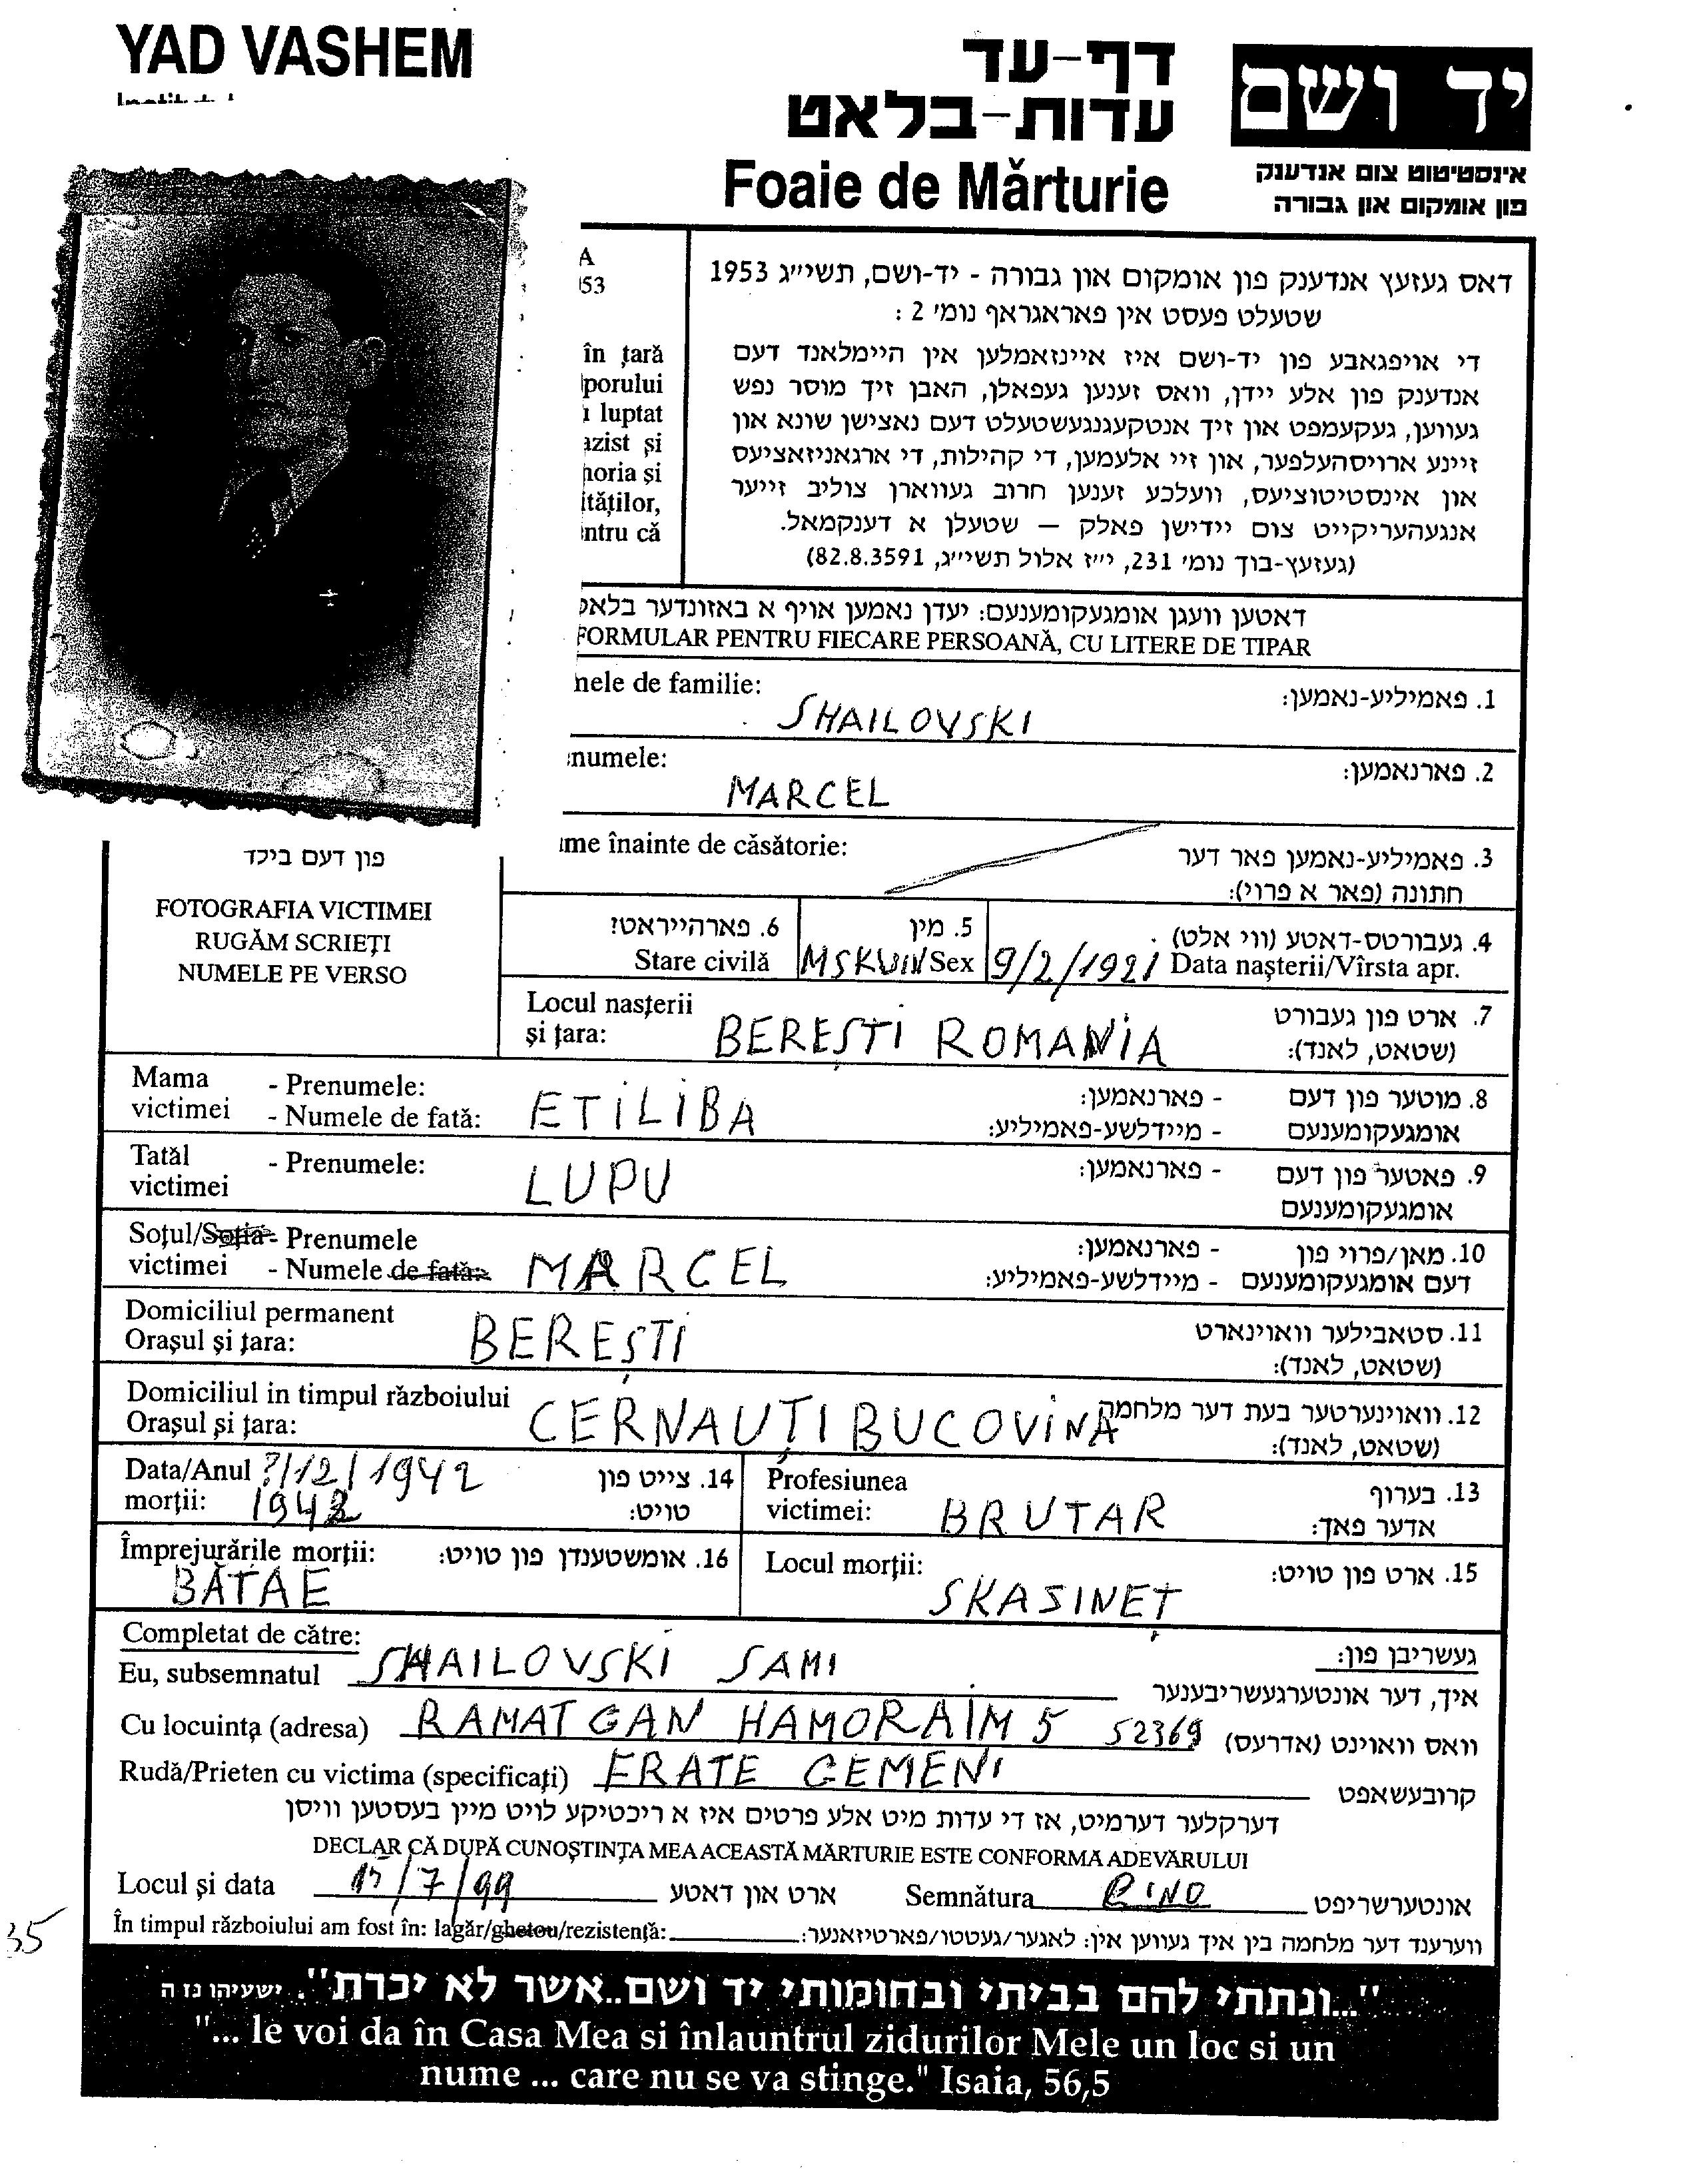 YAD VASHEM
דף-עד
עדות-בלאט
Foaie de Mărturie
יד ושם
אינסטיטוט צום אנדענק
פון אומקום און גבורה
A
953
în ţară
porului
luptat
azist şi
noria şi
ităţilor,
entru că
דאס געזעץ אנדענק פון אומקום און גבורה - יד-ושם, תשי״ג 1953
שטעלט פעסט אין פאראגראף נומ׳ 2 :
די אויפגאבע פון יד-ושם איז איינזאמלען אין היימלאנד דעם
אנדענק פון אלע יידן, וואס זענען געפאלן, האבן זיך מוסר נפש
געווען, געקעמפט און זיך אנטקעגנגעשטעלט דעם נאצישן שונא און
זיינע ארויסהעלפער, און זיי אלעמען, די קהילות, די ארגאניזאציעס
און אינסטיטוציעס, וועלכע זענען חרוב געווארן צוליב זייער
אנגעהעריקייט צום יידישן פאלק — שטעלן א דענקמאל.
(געזעץ-בוך נומ׳ 231, י״ז אלול תשי״ג, 82.8.3591)
דאטען וועגן אומגעקומענעם: יעדן נאמען אויף א באזונדער בלאט
FORMULAR PENTRU FIECARE PERSOANĂ, CU LITERE DE TIPAR
mele de familie: SHAILOVSKI 1. פאמיליע-נאמען:
enumele: MARCEL 2. פארנאמען:
ume înainte de căsătorie: 3. פאמיליע-נאמען פאר דער
חתונה (פאר א פרוי):
פון דעם בילד
FOTOGRAFIA VICTIMEI
RUGĂM SCRIEŢI
NUMELE PE VERSO
6. פארהייראט? 5. מין 4. געבורטס-דאטע (ווי אלט)
Stare civilă Sex 9/2/1921 Data naşterii/Vîrsta apr.
Locul nasţerii 7. ארט פון געבורט
şi ţara: BEREŞTI ROMANIA (שטאט, לאנד):
Mama - Prenumele: - פארנאמען: 8. מוטער פון דעם
victimei - Numele de fată: ETILIBA - מיידלשע-פאמיליע: אומגעקומענעם
Tatăl - Prenumele: LUPU - פארנאמען: 9. פאטער פון דעם
victimei אומגעקומענעם
Soţul/Soţia - Prenumele - פארנאמען: 10. מאן/פרוי פון
victimei - Numele de fată: MARCEL - מיידלשע-פאמיליע: דעם אומגעקומענעם
Domiciliul permanent 11. סטאבילער וואוינארט
Oraşul şi ţara: BEREŞTI (שטאט, לאנד):
Domiciliul in timpul războiului 12. וואוינערטער בעת דער מלחמה
Oraşul şi ţara: CERNAUŢI BUCOVINA (שטאט, לאנד):
Data/Anul ?/12/1942 14. צייט פון Profesiunea 13. בערוף
morţii: 1942 טויט: victimei: BRUTAR אדער פאך:
Împrejurările morţii: 16. אומשטענדן פון טויט: Locul morţii: 15. ארט פון טויט:
BĂTAE SKASINEŢ
Completat de către: געשריבן פון:
Eu, subsemnatul SHAILOVSKI SAMI איך, דער אונטערגעשריבענער
Cu locuinţa (adresa) RAMAT GAN HAMORAIM 5 52369 וואס וואוינט (אדרעס)
Rudă/Prieten cu victima (specificaţi) FRATE GEMENI קרובעשאפט
דערקלער דערמיט, אז די עדות מיט אלע פרטים איז א ריכטיקע לויט מיין בעסטען וויסן
DECLAR CĂ DUPĂ CUNOŞTINŢA MEA ACEASTĂ MĂRTURIE ESTE CONFORMA ADEVĂRULUI
Locul şi data 15/7/99 ארט און דאטע Semnătura אונטערשריפט
În timpul războiului am fost în: lagăr/ghetou/rezistenţă: ווערענד דער מלחמה בין איך געווען אין: לאגער/געטטו/פארטיזאנער:
35
"...ונתתי להם בביתי ובחומותי יד ושם..אשר לא יכרת". ישעיהו נז ה
"... le voi da în Casa Mea si înlauntrul zidurilor Mele un loc si un
nume ... care nu se va stinge." Isaia, 56,5